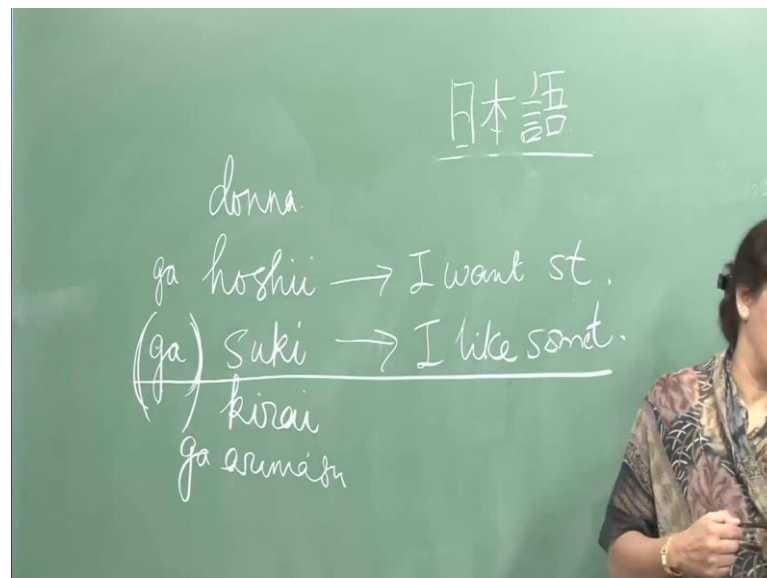 日本語
donna.
ga hoshii → I want st.
(ga) suki → I like somet.
kirai
ga arimasu